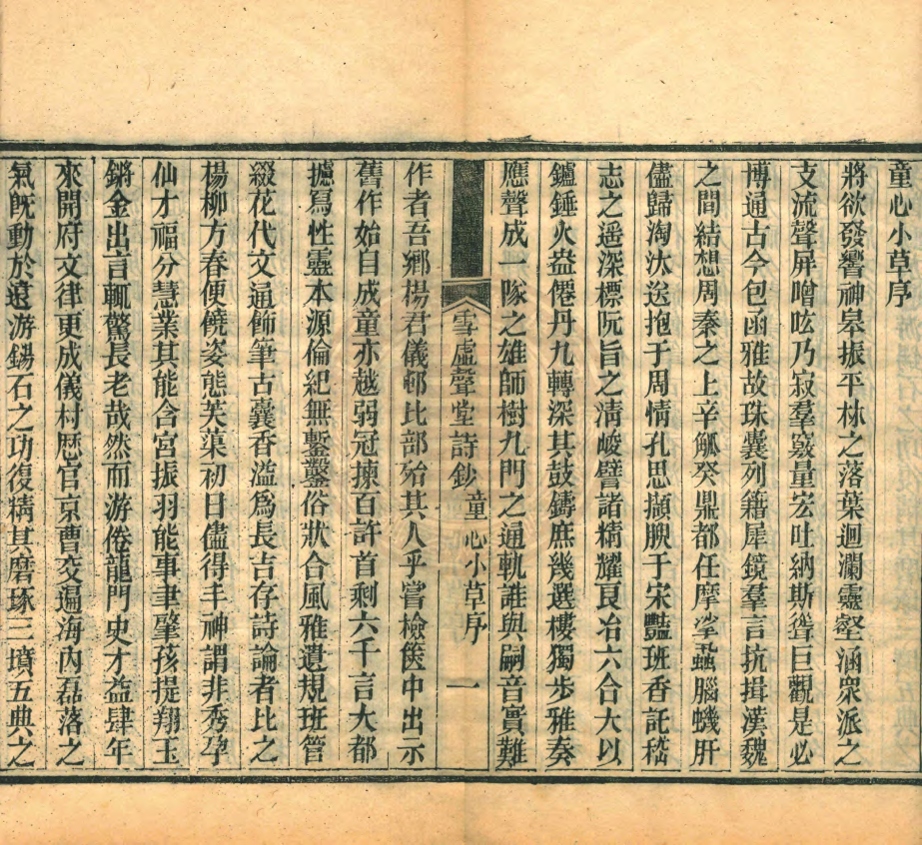 童心小草序
將欲發響神皋振平林之落葉迴瀾靈壑涵衆派之
支流聲屏噌吰乃寂羣竅量宏吐納斯聳巨觀是必
博通古今包函雅故珠囊列籍犀鏡羣言抗揖漢魏
之間結想周秦之上辛觚癸鼎都任摩挲蝨腦蟣肝
儘歸淘汰送抱于周情孔思擷腴于宋豔班香託嵇
志之遥深標阮旨之淸峻譬諸精耀良冶六合大以
鑪錘火益僊丹九轉深其鼓鑄庶幾選樓獨步雅奏
應聲成一隊之雄師樹九門之通軌誰與嗣音實難
雪虛聲堂詩鈔 童心小草序 一
作者吾鄉楊君儀邨比部殆其人乎嘗檢篋中出示
舊作始自成童亦越弱冠揀百許首剩六千言大都
攄寫性靈本源倫紀無鏨鑿俗狀合風雅遺規班管
綴花代文通飾筆古囊香溢爲長吉存詩論者比之
楊柳方春便饒姿態芙蕖初日儘得丰神謂非秀孕
仙才福分慧業其能含宮振羽能事聿肇孩提翔玉
鏘金出言輒驚長老哉然而游倦龍門史才益肆年
來開府文律更成儀村歴官京曹交遍海內磊落之
氣旣動於遠游錫石之功復精其磨琢三墳五典之